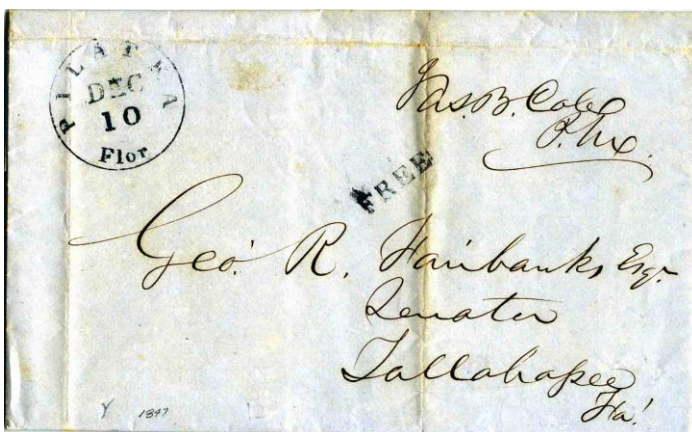 PILATKA
DEC
10
Flor
Jas. B. Cole
P.M.
FREE
Geo. R. Fairbanks Esqr.
Senator
Tallahassee
Fa!
1847